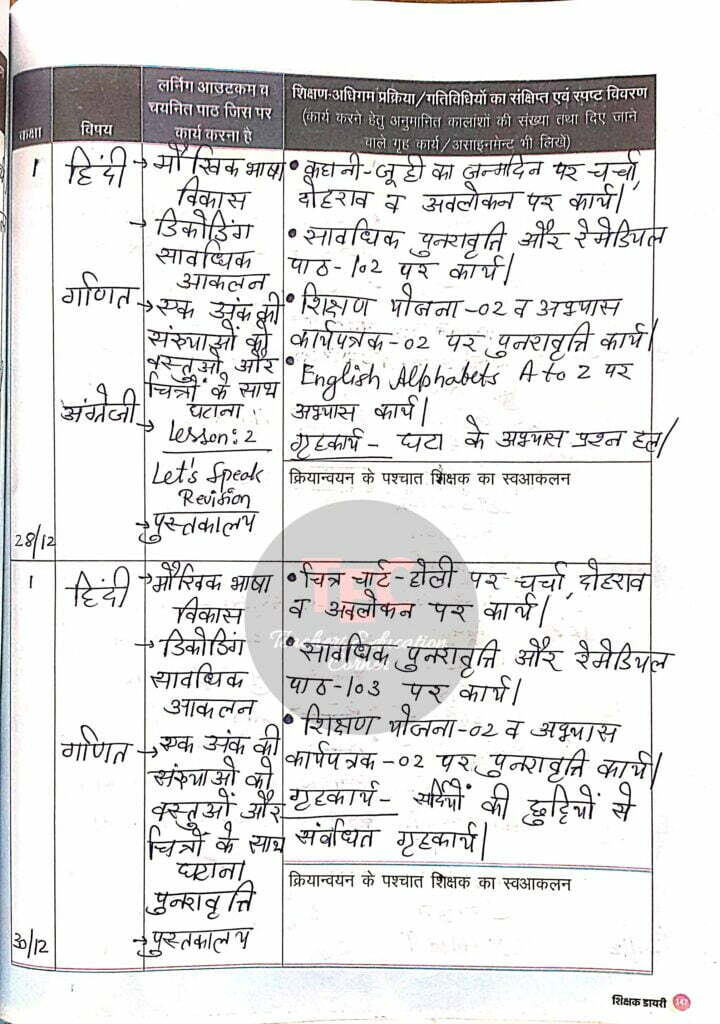 कक्षा
विषय
लर्निंग आउटकम व
चयनित पाठ जिस पर
कार्य करना है
शिक्षण-अधिगम प्रक्रिया/गतिविधियों का संक्षिप्त एवं स्पष्ट विवरण
(कार्य करने हेतु अनुमानित कालांशों की संख्या तथा दिए जाने
वाले गृह कार्य/असाइनमेन्ट भी लिखें)
1
हिंदी
→ मौखिक भाषा
विकास
→ डिकोडिंग
सावधिक
आकलन
गणित
→ एक अंक की
संख्याओं को
वस्तुओं और
चित्रों के साथ
घटाना
अंग्रेजी
→ Lesson: 2
Let's Speak
Revision
→ पुस्तकालय
• कहानी-जूही का जन्मदिन पर चर्चा,
दोहराव व अवलोकन पर कार्य।
• सावधिक पुनरावृत्ति और रेमेडियल
पाठ-102 पर कार्य।
• शिक्षण योजना-02 व अभ्यास
कार्यपत्रक-02 पर पुनरावृत्ति कार्य।
• English Alphabets A to Z पर
अभ्यास कार्य।
गृहकार्य - घटा के अभ्यास प्रश्न हल।
क्रियान्वयन के पश्चात शिक्षक का स्वआकलन
28/12
1
हिंदी
→ मौखिक भाषा
विकास
→ डिकोडिंग
सावधिक
आकलन
गणित
→ एक अंक की
संख्याओं को
वस्तुओं और
चित्रों के साथ
घटाना
पुनरावृत्ति
→ पुस्तकालय
• चित्र चार्ट-होली पर चर्चा, दोहराव
व अवलोकन पर कार्य।
• सावधिक पुनरावृत्ति और रेमेडियल
पाठ-103 पर कार्य।
• शिक्षण योजना-02 व अभ्यास
कार्यपत्रक-02 पर पुनरावृत्ति कार्य।
गृहकार्य - सर्दियों की छुट्टियों से
संबंधित गृहकार्य।
क्रियान्वयन के पश्चात शिक्षक का स्वआकलन
30/12
TEC
Teachers Education
Corner
शिक्षक डायरी